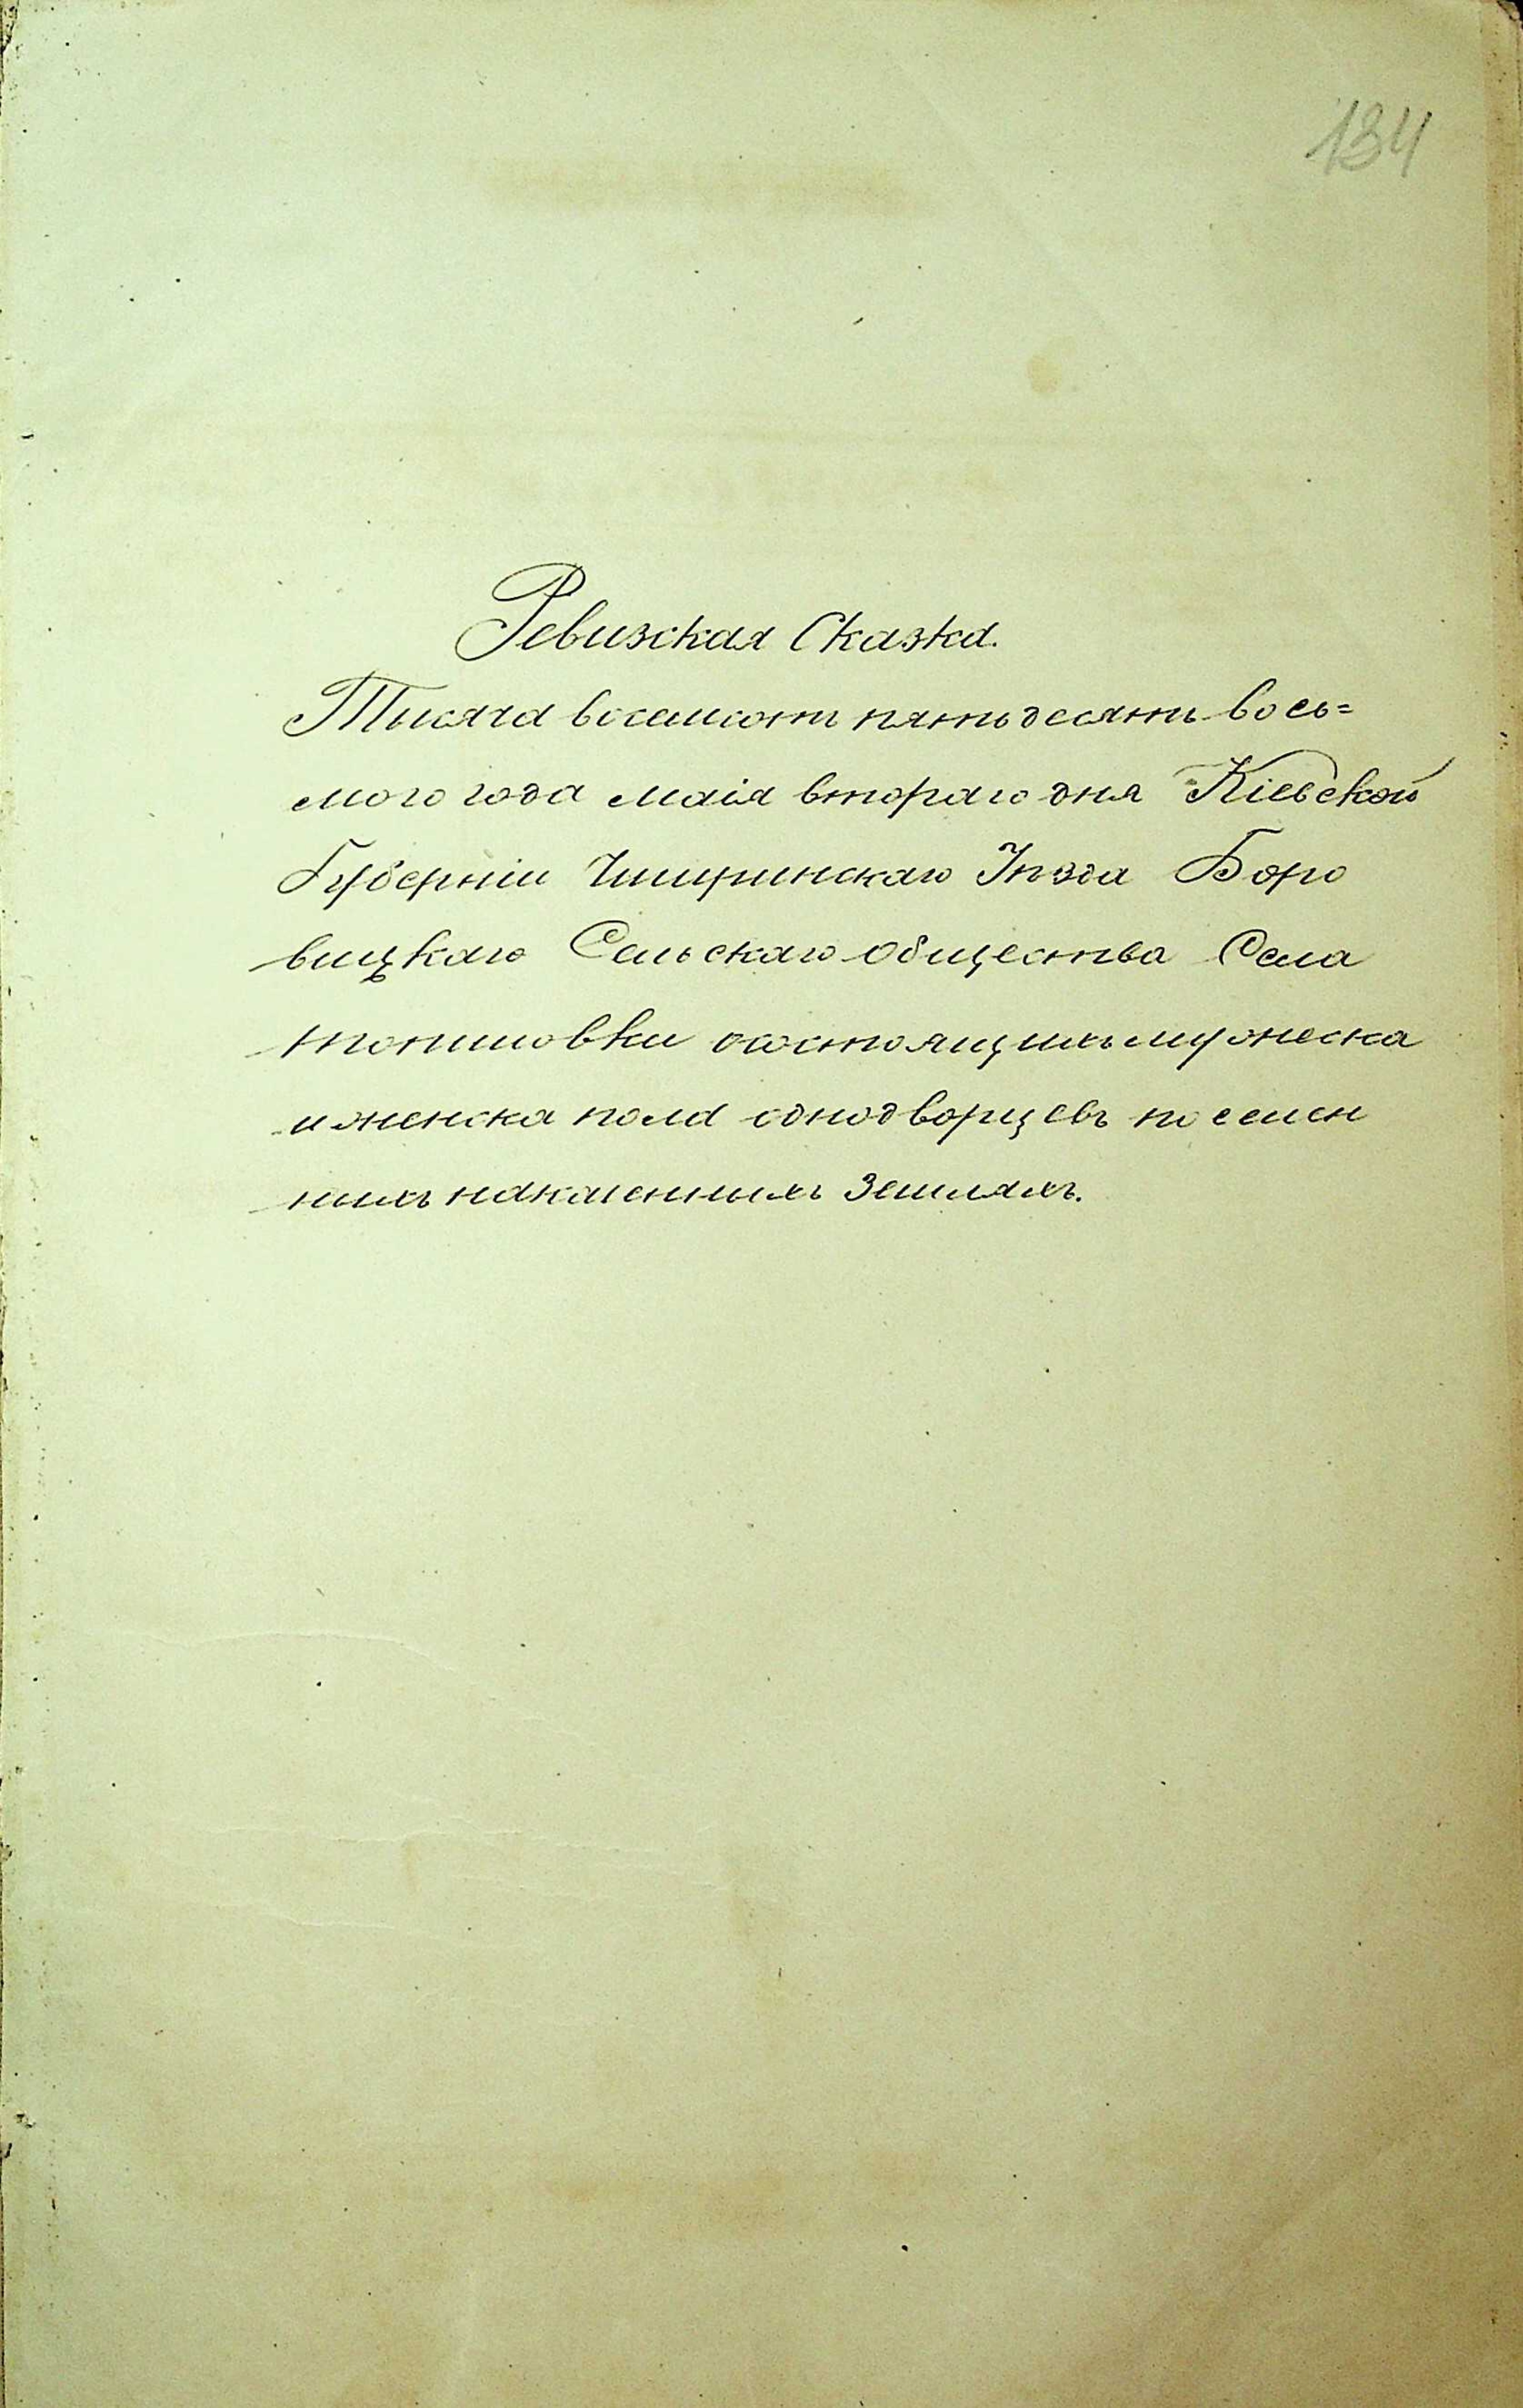 134
Ревизская Сказка.
Тысяча восемсотъ пятьдесятъ вось=
мого года маія втораго дня Кіевской
Губерніи Чигиринскаго Уѣзда Боро
вицкаго Сельскаго общества Села
топиловки осостоящихъ мужеска
и женска пола однодворцевъ поселен
ныхъ на казенныхъ земляхъ.